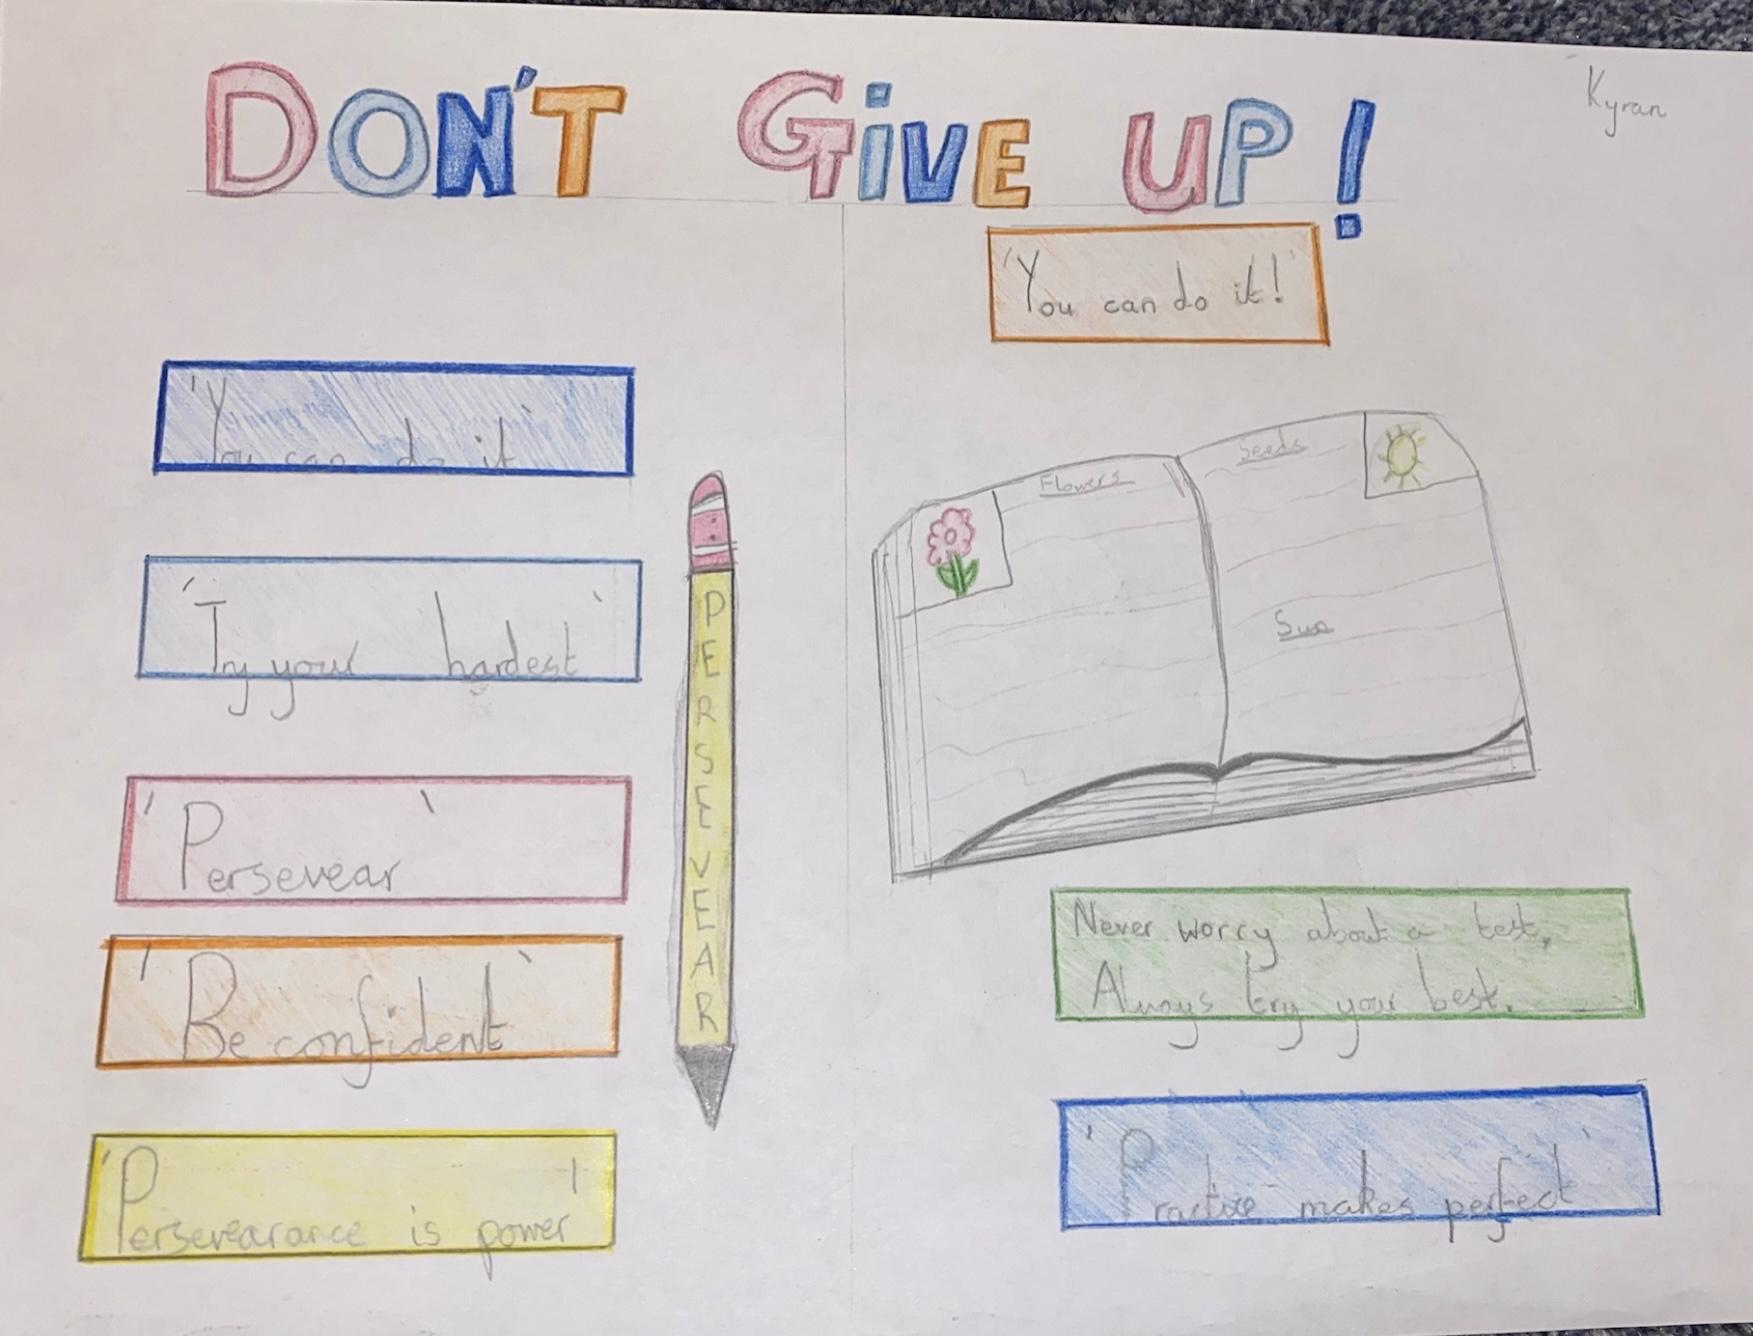 DON'T GiVE UP!
Kyran
'You can do it!'
'You can do it'
'Try your hardest'
'Persevear'
'Be confident'
'Persevearance is power'
PERSEVEAR
Flowers
Seeds
Sun
Never worry about a test,
Always try your best.
'Practise makes perfect'